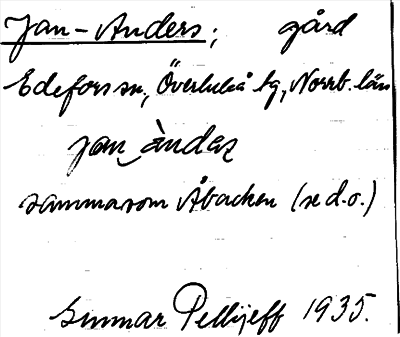 Jan-Anders; gård
Edefors sn, Överluleå tg, Norrb. län
jan àndaș
samma som Åbacken (se d.o.)
Gunnar Pellijeff 1935.